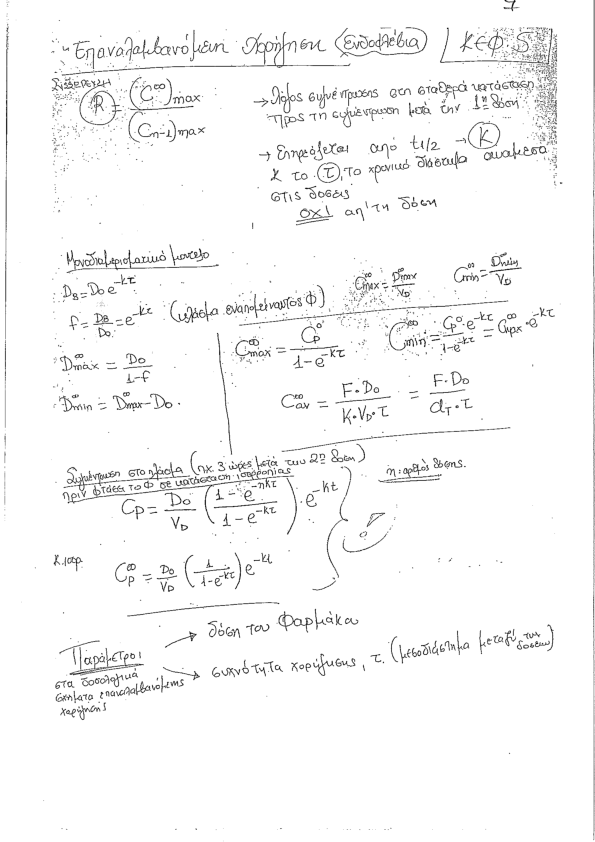 7
Επαναλαμβανόμενη Χορήγηση (Ενδοφλέβια) ΚΕΦ. 5
R = (C^∞)max / (C_{n=1})max
→ Λόγος συγκέντρωσης στη σταθερά κατάσταση
προς τη συγκέντρωση μετά την 1η δόση
→ Επηρεάζεται από t1/2 → K
κ το τ, το χρονικό διάστημα ανάμεσα
στις δόσεις
ΟΧΙ απ' τη δόση
Μονοδιαμερισματικό μοντέλο
D_B = D_0 e^{-kτ}
C^∞_max = D^∞_max / V_D
C^∞_min = D^∞_min / V_D
f = D_B / D_0 = e^{-kτ} (κλάσμα εναπομείναντος Φ)
C^∞_max = C_p^0 / 1-e^{-kτ}
C^∞_min = C_p^0 · e^{-kτ} / 1-e^{-kτ} = C^∞_max · e^{-kτ}
D^∞_max = D_0 / 1-f
D^∞_min = D^∞_max - D_0.
C^∞_av = F·D_0 / K·V_D·τ = F·D_0 / Cl_T·τ
Συγκέντρωση στο πλάσμα (πχ 3 ώρες μετά την 2η δόση)
πριν φτάσει το Φ σε κατάσταση ισορροπίας
n: αριθμός δόσης.
C_p = D_0 / V_D (1 - e^{-nkτ} / 1 - e^{-kτ}) · e^{-kt}
Κ.ισορ.
C_p^∞ = D_0 / V_D (1 / 1-e^{-kτ}) e^{-kt}
Παράμετροι
στα δοσολογικά
σχήματα επαναλαμβανόμενης
χορήγησης
→ δόση του Φαρμάκου
→ συχνότητα χορήγησης, τ. (μεσοδιάστημα μεταξύ των δόσεων)